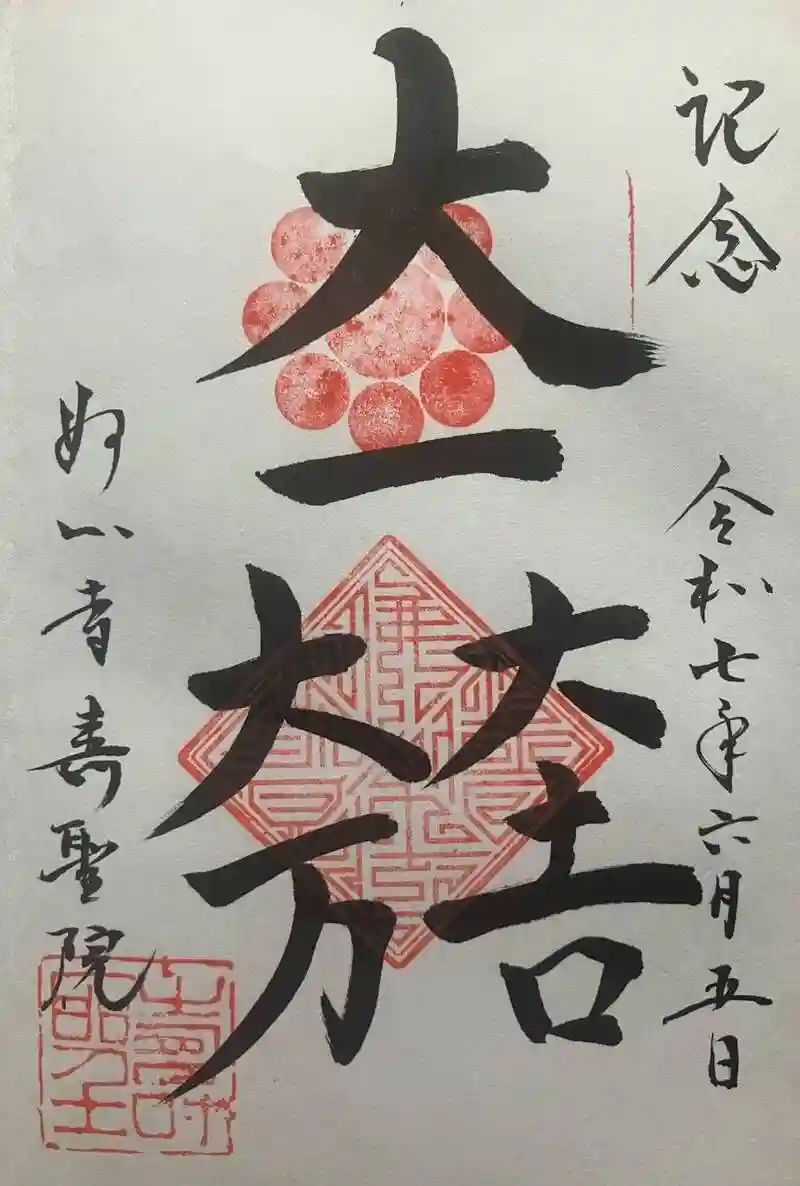 記念
令和七年六月五日
大一
大万
大吉
妙心寺寿聖院